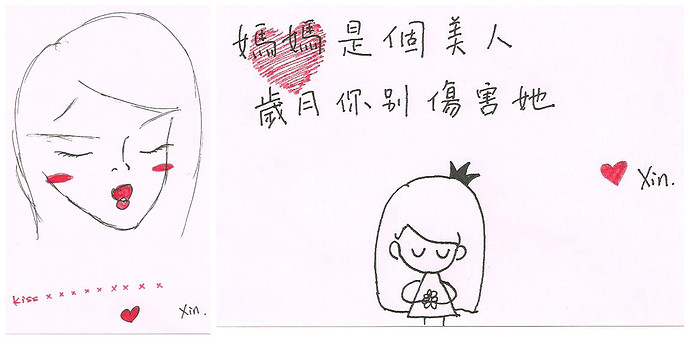 kiss x x x x x x x x x
xin.
媽媽是個美人
歲月你別傷害她
xin.